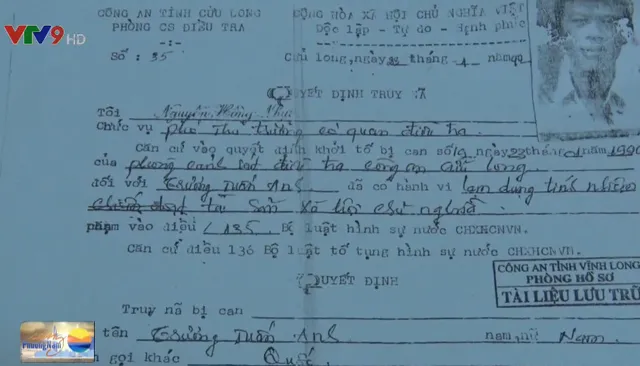 VTV9 HD
CÔNG AN TỈNH CỬU LONG
PHÒNG CS ĐIỀU TRA
Số : 35
CỘNG HÒA XÃ HỘI CHỦ NGHĨA VIỆT
Độc lập - Tự do - Hạnh phúc
Cửu long, ngày 23 tháng 1 năm 90
QUYẾT ĐỊNH TRUY NÃ
Tôi Nguyễn Hồng
Chức vụ phó thủ trưởng cơ quan điều tra.
Căn cứ vào quyết định khởi tố bị can số 19 ngày 22 tháng 01 năm 1990
của phòng cảnh sát điều tra công an Cửu Long.
đối với Trương Tuấn Anh đã có hành vi lạm dụng tính nhiệm
chiếm đoạt tài sản xã hội chủ nghĩa
phạm vào điều 135. Bộ luật hình sự nước CHXHCNVN.
Căn cứ điều 136 Bộ luật tố tụng hình sự nước CHXHCNVN.
QUYẾT ĐỊNH
CÔNG AN TỈNH VĨNH LONG
PHÒNG HỒ SƠ
TÀI LIỆU LƯU TRỮ
Truy nã bị can
tên Trương Tuấn Anh nam, nữ Nam.
gọi khác Quốc
Phương Nam